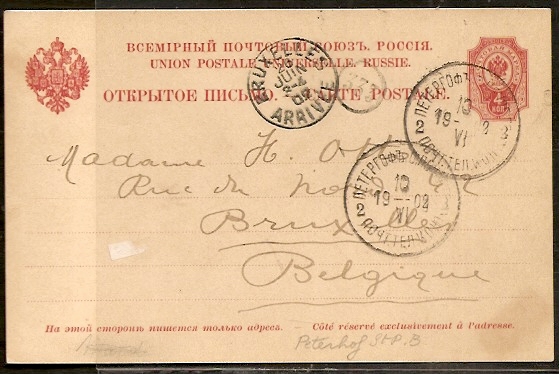 ВСЕМІРНЫЙ ПОЧТОВЫЙ СОЮЗЪ. РОССІЯ.
UNION POSTALE UNIVERSELLE. RUSSIE.
ОТКРЫТОЕ ПИСЬМО. — CARTE POSTALE.
4 КОП
BRUXELLES
JUIN
ARRIVÉE
ПЕТЕРГОФЪ
10
19 — 02
VI
2
ПЕТЕРГОФЪ
10
19 — 02
VI
2
Madame H.
Rue du 42
Bruxelles
Belgique
На этой сторонѣ пишется только адресъ. — Côté réservé exclusivement à l'adresse.
Peterhof St P. B